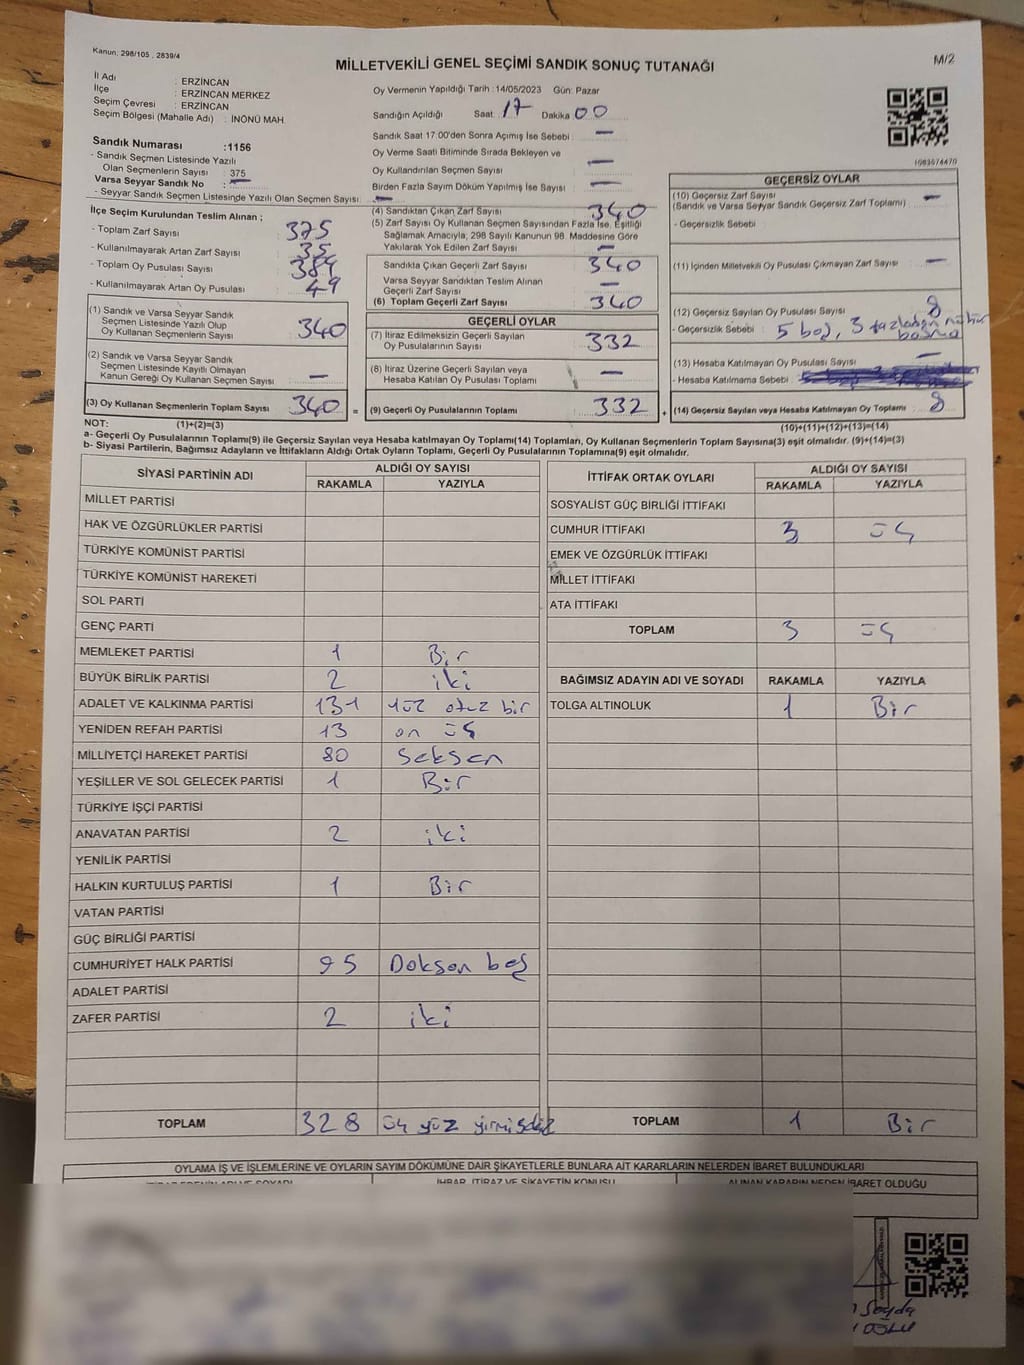 Kanun: 298/105 , 2839/4
MİLLETVEKİLİ GENEL SEÇİMİ SANDIK SONUÇ TUTANAĞI
M/2
İl Adı : ERZİNCAN
İlçe : ERZİNCAN MERKEZ
Seçim Çevresi : ERZİNCAN
Seçim Bölgesi (Mahalle Adı) : İNÖNÜ MAH.
Sandık Numarası :1156
- Sandık Seçmen Listesinde Yazılı
Olan Seçmenlerin Sayısı : 375
Varsa Seyyar Sandık No : —
- Seyyar Sandık Seçmen Listesinde Yazılı Olan Seçmen Sayısı: —
Oy Vermenin Yapıldığı Tarih :14/05/2023 Gün: Pazar
Sandığın Açıldığı Saat: 17 Dakika: 00
Sandık Saat 17:00'den Sonra Açımış İse Sebebi : —
Oy Verme Saati Bitiminde Sırada Bekleyen ve
Oy Kullandırılan Seçmen Sayısı : —
Birden Fazla Sayım Döküm Yapılmış İse Sayısı : —
İlçe Seçim Kurulundan Teslim Alınan ;
- Toplam Zarf Sayısı : 375
- Kullanılmayarak Artan Zarf Sayısı : 35
- Toplam Oy Pusulası Sayısı : 389
- Kullanılmayarak Artan Oy Pusulası : 49
(1) Sandık ve Varsa Seyyar Sandık
Seçmen Listesinde Yazılı Olup
Oy Kullanan Seçmenlerin Sayısı : 340
(2) Sandık ve Varsa Seyyar Sandık
Seçmen Listesinde Kayıtlı Olmayan
Kanun Gereği Oy Kullanan Seçmen Sayısı : —
(3) Oy Kullanan Seçmenlerin Toplam Sayısı 340 =
(4) Sandıktan Çıkan Zarf Sayısı : 340
(5) Zarf Sayısı Oy Kullanan Seçmen Sayısından Fazla İse, Eşitliği
Sağlamak Amacıyla, 298 Sayılı Kanunun 98. Maddesine Göre
Yakılarak Yok Edilen Zarf Sayısı : —
Sandıkta Çıkan Geçerli Zarf Sayısı : 340
Varsa Seyyar Sandıktan Teslim Alınan
Geçerli Zarf Sayısı : —
(6) Toplam Geçerli Zarf Sayısı : 340
GEÇERLİ OYLAR
(7) İtiraz Edilmeksizin Geçerli Sayılan
Oy Pusulalarının Sayısı : 332
(8) İtiraz Üzerine Geçerli Sayılan veya
Hesaba Katılan Oy Pusulası Toplamı : —
(9) Geçerli Oy Pusulalarının Toplamı : 332 +
GEÇERSİZ OYLAR
(10) Geçersiz Zarf Sayısı
(Sandık ve Varsa Seyyar Sandık Geçersiz Zarf Toplamı) : —
- Geçersizlik Sebebi :
(11) İçinden Milletvekili Oy Pusulası Çıkmayan Zarf Sayısı : —
(12) Geçersiz Sayılan Oy Pusulası Sayısı : 8
- Geçersizlik Sebebi : 5 boş, 3 fazladan mühür
basma
(13) Hesaba Katılmayan Oy Pusulası Sayısı : —
- Hesaba Katılmama Sebebi :
(14) Geçersiz Sayılan veya Hesaba Katılmayan Oy Toplamı : 8
NOT: (1)+(2)=(3) (10)+(11)+(12)+(13)=(14)
a- Geçerli Oy Pusulalarının Toplamı(9) ile Geçersiz Sayılan veya Hesaba katılmayan Oy Toplamı(14) Toplamları, Oy Kullanan Seçmenlerin Toplam Sayısına(3) eşit olmalıdır. (9)+(14)=(3)
b- Siyasi Partilerin, Bağımsız Adayların ve İttifakların Aldığı Ortak Oyların Toplamı, Geçerli Oy Pusulalarının Toplamına(9) eşit olmalıdır.
SİYASİ PARTİNİN ADI ALDIĞI OY SAYISI
RAKAMLA YAZIYLA
MİLLET PARTİSİ
HAK VE ÖZGÜRLÜKLER PARTİSİ
TÜRKİYE KOMÜNİST PARTİSİ
TÜRKİYE KOMÜNİST HAREKETİ
SOL PARTİ
GENÇ PARTİ
MEMLEKET PARTİSİ 1 Bir
BÜYÜK BİRLİK PARTİSİ 2 iki
ADALET VE KALKINMA PARTİSİ 131 yüz otuz bir
YENİDEN REFAH PARTİSİ 13 on üç
MİLLİYETÇİ HAREKET PARTİSİ 80 Seksen
YEŞİLLER VE SOL GELECEK PARTİSİ 1 Bir
TÜRKİYE İŞÇİ PARTİSİ
ANAVATAN PARTİSİ 2 iki
YENİLİK PARTİSİ
HALKIN KURTULUŞ PARTİSİ 1 Bir
VATAN PARTİSİ
GÜÇ BİRLİĞİ PARTİSİ
CUMHURİYET HALK PARTİSİ 95 Doksan beş
ADALET PARTİSİ
ZAFER PARTİSİ 2 iki
TOPLAM 328 üç yüz yirmi sekiz
İTTİFAK ORTAK OYLARI ALDIĞI OY SAYISI
RAKAMLA YAZIYLA
SOSYALİST GÜÇ BİRLİĞİ İTTİFAKI
CUMHUR İTTİFAKI 3 üç
EMEK VE ÖZGÜRLÜK İTTİFAKI
MİLLET İTTİFAKI
ATA İTTİFAKI
TOPLAM 3 üç
BAĞIMSIZ ADAYIN ADI VE SOYADI RAKAMLA YAZIYLA
TOLGA ALTINOLUK 1 Bir
TOPLAM 1 Bir
OYLAMA İŞ VE İŞLEMLERİNE VE OYLARIN SAYIM DÖKÜMÜNE DAİR ŞİKAYETLERLE BUNLARA AİT KARARLARIN NELERDEN İBARET BULUNDUKLARI
İHBAR, İTİRAZ VE ŞİKAYETİN KONUSU ALINAN KARARIN NEDEN İBARET OLDUĞU